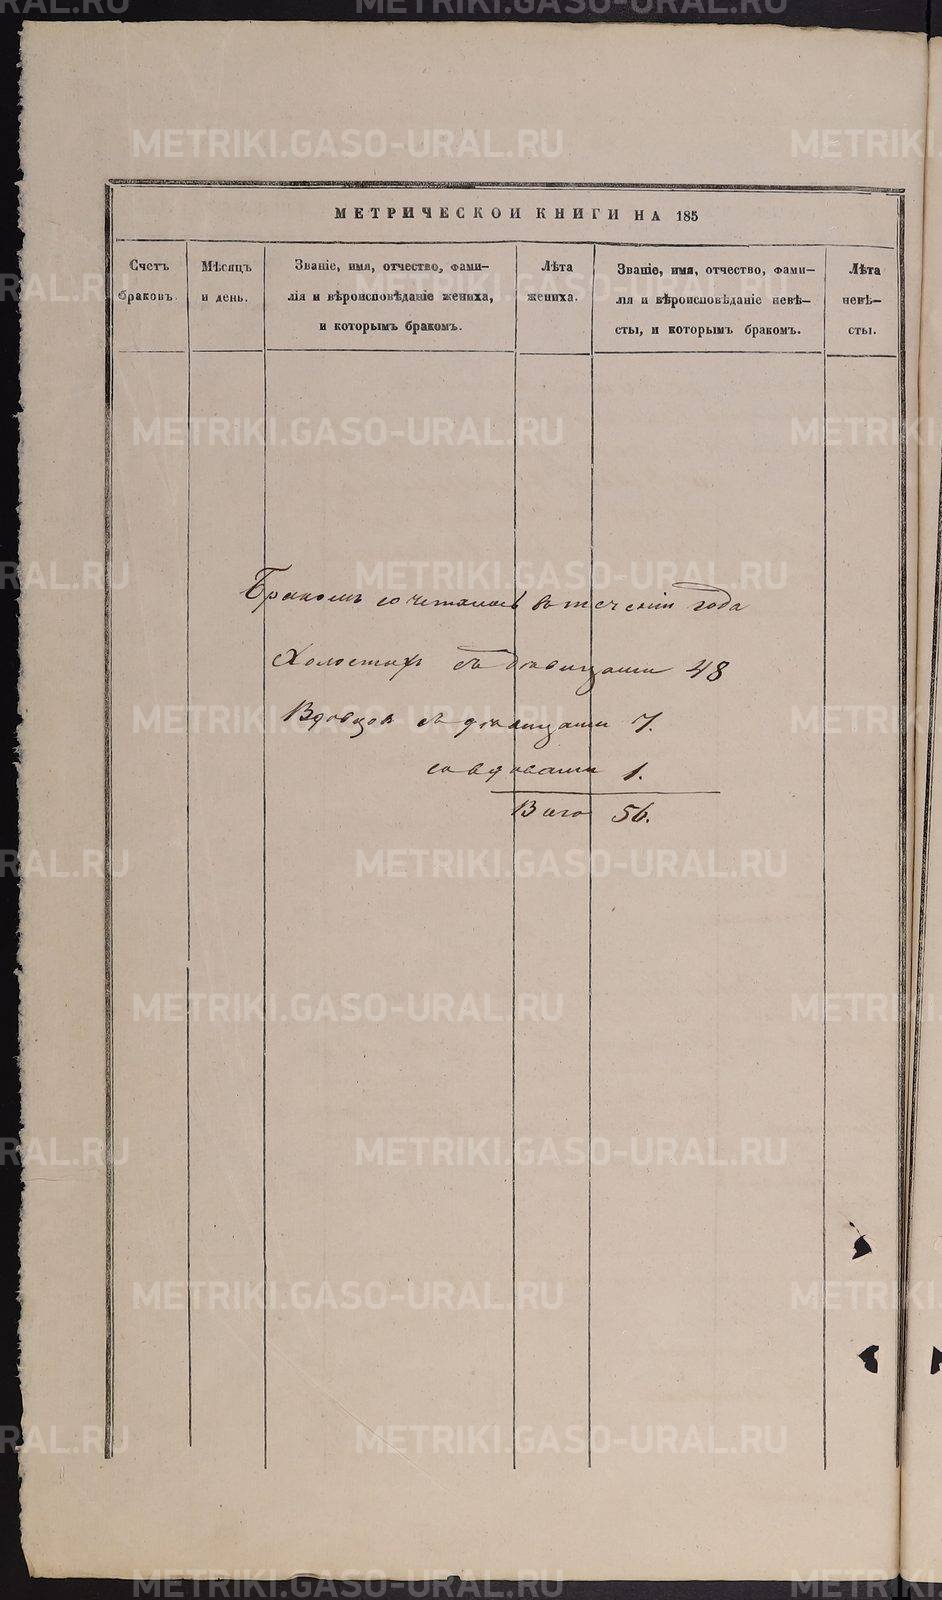 МЕТРИЧЕСКОЙ КНИГИ НА 185
Счетъ
браковъ.
Мѣсяцъ
и день.
Званіе, имя, отчество, фами-
лія и вѣроисповѣданіе жениха,
и которымъ бракомъ.
Лѣта
жениха.
Званіе, имя, отчество, фами-
лія и вѣроисповѣданіе невѣ-
сты, и которымъ бракомъ.
Лѣта
невѣ-
сты.
Бракомъ сочеталось въ теченіи года
Холостыхъ съ дѣвицами 48
Вдовцов съ дѣвицами 7.
со вдовами 1.
Всего 56.
METRIKI.GASO-URAL.RU